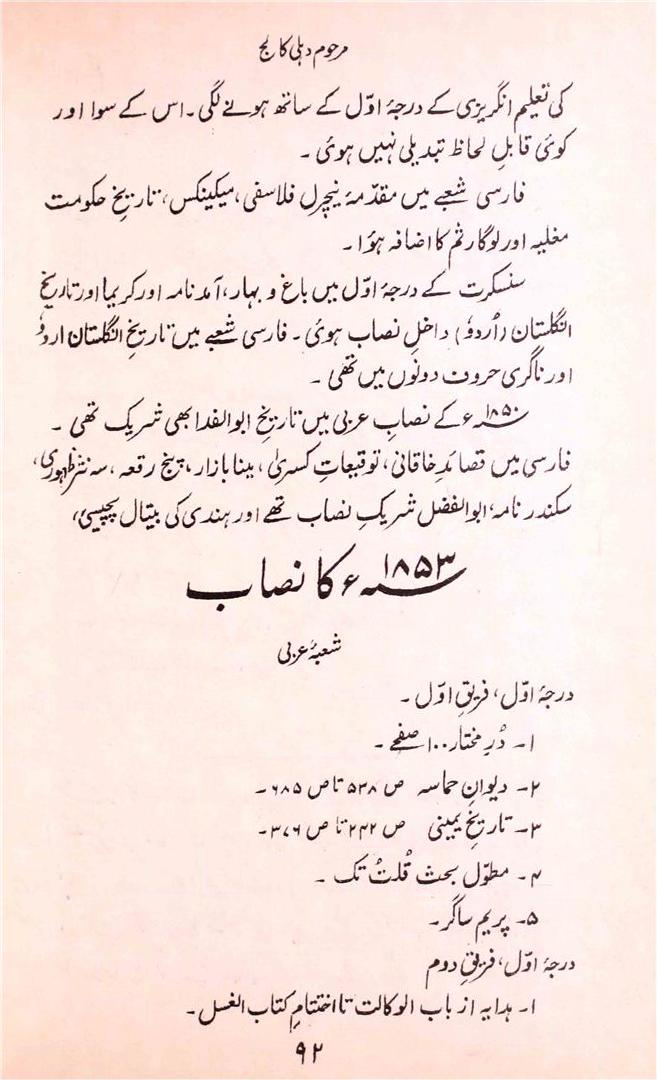 مرحوم دہلی کالج
کی تعلیم انگریزی کے درجۂ اوّل کے ساتھ ہونے لگی۔ اس کے سوا اور
کوئی قابلِ لحاظ تبدیلی نہیں ہوئی۔
فارسی شعبے میں مقدّمۂ نیچرل فلاسفی، میکینکس، تاریخِ حکومت
مغلیہ اور لوگارثم کا اضافہ ہؤا۔
سنسکرت کے درجۂ اوّل میں باغ و بہار، آمدنامہ اور کریما اور تاریخِ
انگلستان (اُردوٗ) داخلِ نصاب ہوئی۔ فارسی شعبے میں تاریخِ انگلستان اردوٗ
اور ناگری حروف دونوں میں تھی۔
۱۸۵۰ء کے نصابِ عربی میں تاریخ ابوالفدا بھی شریک تھی۔
فارسی میں قصائدِ خاقانی، توقیعاتِ کسریٰ، مینا بازار، پنج رقعہ، سہ نثرِ ظہوری،
سکندر نامہ، ابوالفضل شریکِ نصاب تھے اور ہندی کی بیتال پچیسی،
۱۸۵۳ء کا نصاب
شعبۂ عربی
درجۂ اوّل، فریقِ اوّل۔
۱۔ دُرِ مختار ۱۰۰ صفحے۔
۲۔ دیوانِ حماسہ ص ۵۳۸ تا ص ۶۸۵۔
۳۔ تاریخِ یمینی ص ۲۴۲ تا ص ۳۷۶۔
۴۔ مطوّل بحث قُلتُ تک۔
۵۔ پریم ساگر۔
درجۂ اوّل، فریقِ دوم
۱۔ ہدایہ از باب الوکالت تا اختتامِ کتاب الغسل۔
۹۲